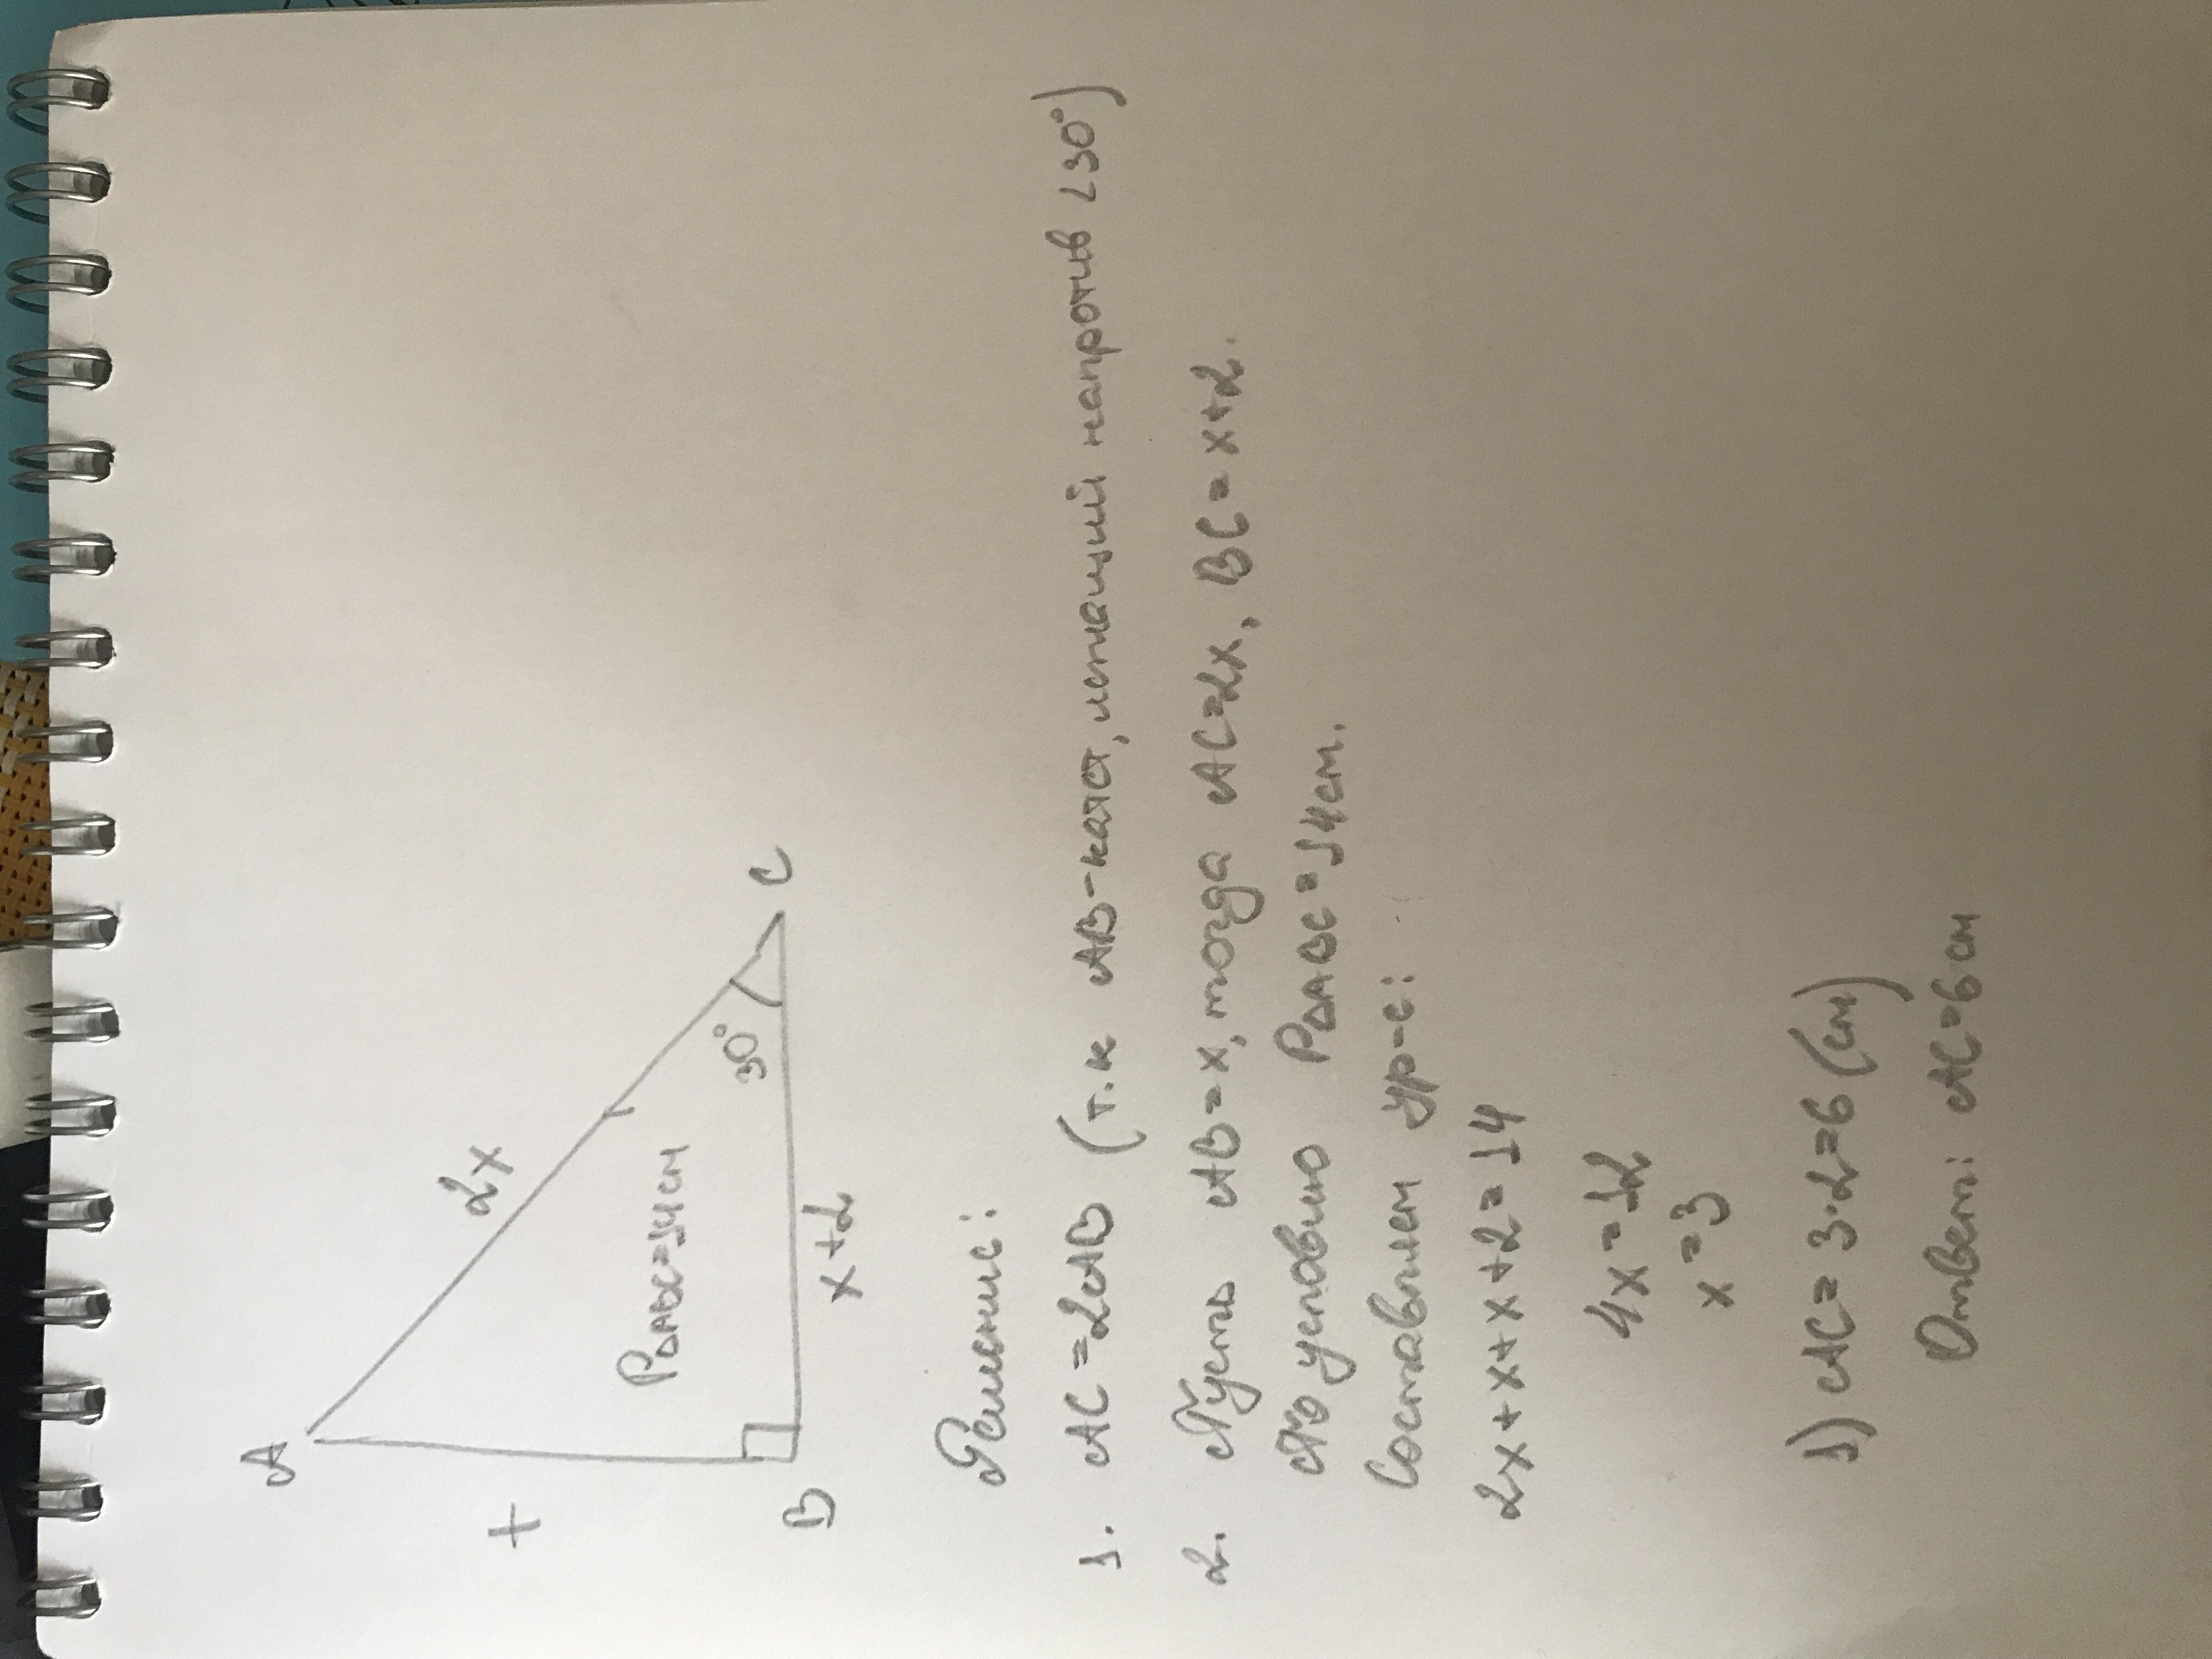 A
2x
x
P△ABC=14см
30°
B
x+2
C
Решение:
1. AC=2AB (т.к AB-катет, лежащий напротив ∠30°)
2. Пусть AB=x, тогда AC=2x, BC=x+2.
По условию P△ABC=14см.
Составляем ур-е:
2x+x+x+2=14
4x=12
x=3
1) AC=3·2=6(см)
Ответ: AC=6см